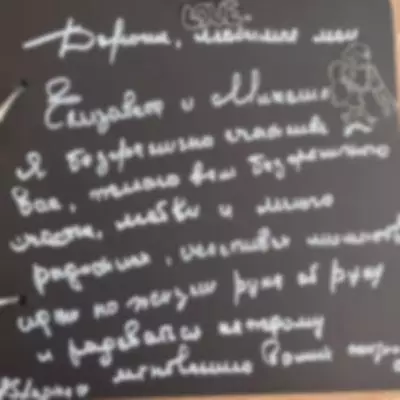 LOVE.
Дорогие, любимые мои
Елизавета и Михаил
Я безгранично счастлива
Вас, желаю вам безгранично
счастья, любви и много
радости,
идти по жизни рука об руку
и радоваться каждому
мгновению Вашей